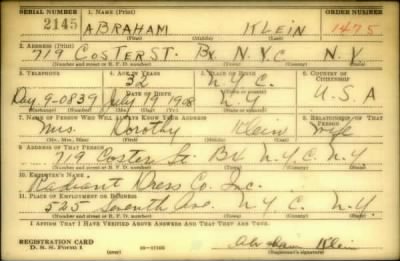 SERIAL NUMBER 1. NAME (Print) ORDER NUMBER
2145 ABRAHAM KLEIN 1475
(First) (Middle) (Last)
2. ADDRESS (Print)
719 COSTER ST. Bx N.Y.C N.Y.
(Number and street or R. F. D. number) (Town) (County) (State)
3. TELEPHONE 4. AGE IN YEARS 5. PLACE OF BIRTH 6. COUNTRY OF CITIZENSHIP
32 N.Y.C.
DATE OF BIRTH
Day. 9-0839 July 19 1908 N.Y U.S.A
(Exchange) (Number) (Mo.) (Day) (Yr.) (State or country)
7. NAME OF PERSON WHO WILL ALWAYS KNOW YOUR ADDRESS 8. RELATIONSHIP OF THAT PERSON
Mrs. Dorothy Klein Wife
(Mr., Mrs., Miss) (First) (Middle) (Last)
9. ADDRESS OF THAT PERSON
719 Coster St. Bx N.Y.C. N.Y.
(Number and street or R. F. D. number) (Town) (County) (State)
10. EMPLOYER'S NAME
Radiant Dress Co. Inc.
11. PLACE OF EMPLOYMENT OR BUSINESS
525 Seventh Ave. N.Y.C. N.Y.
(Number and street or R. F. D. number) (Town) (County) (State)
I AFFIRM THAT I HAVE VERIFIED ABOVE ANSWERS AND THAT THEY ARE TRUE.
REGISTRATION CARD
D. S. S. Form 1 (over) Abraham Klein
(Registrant's signature)